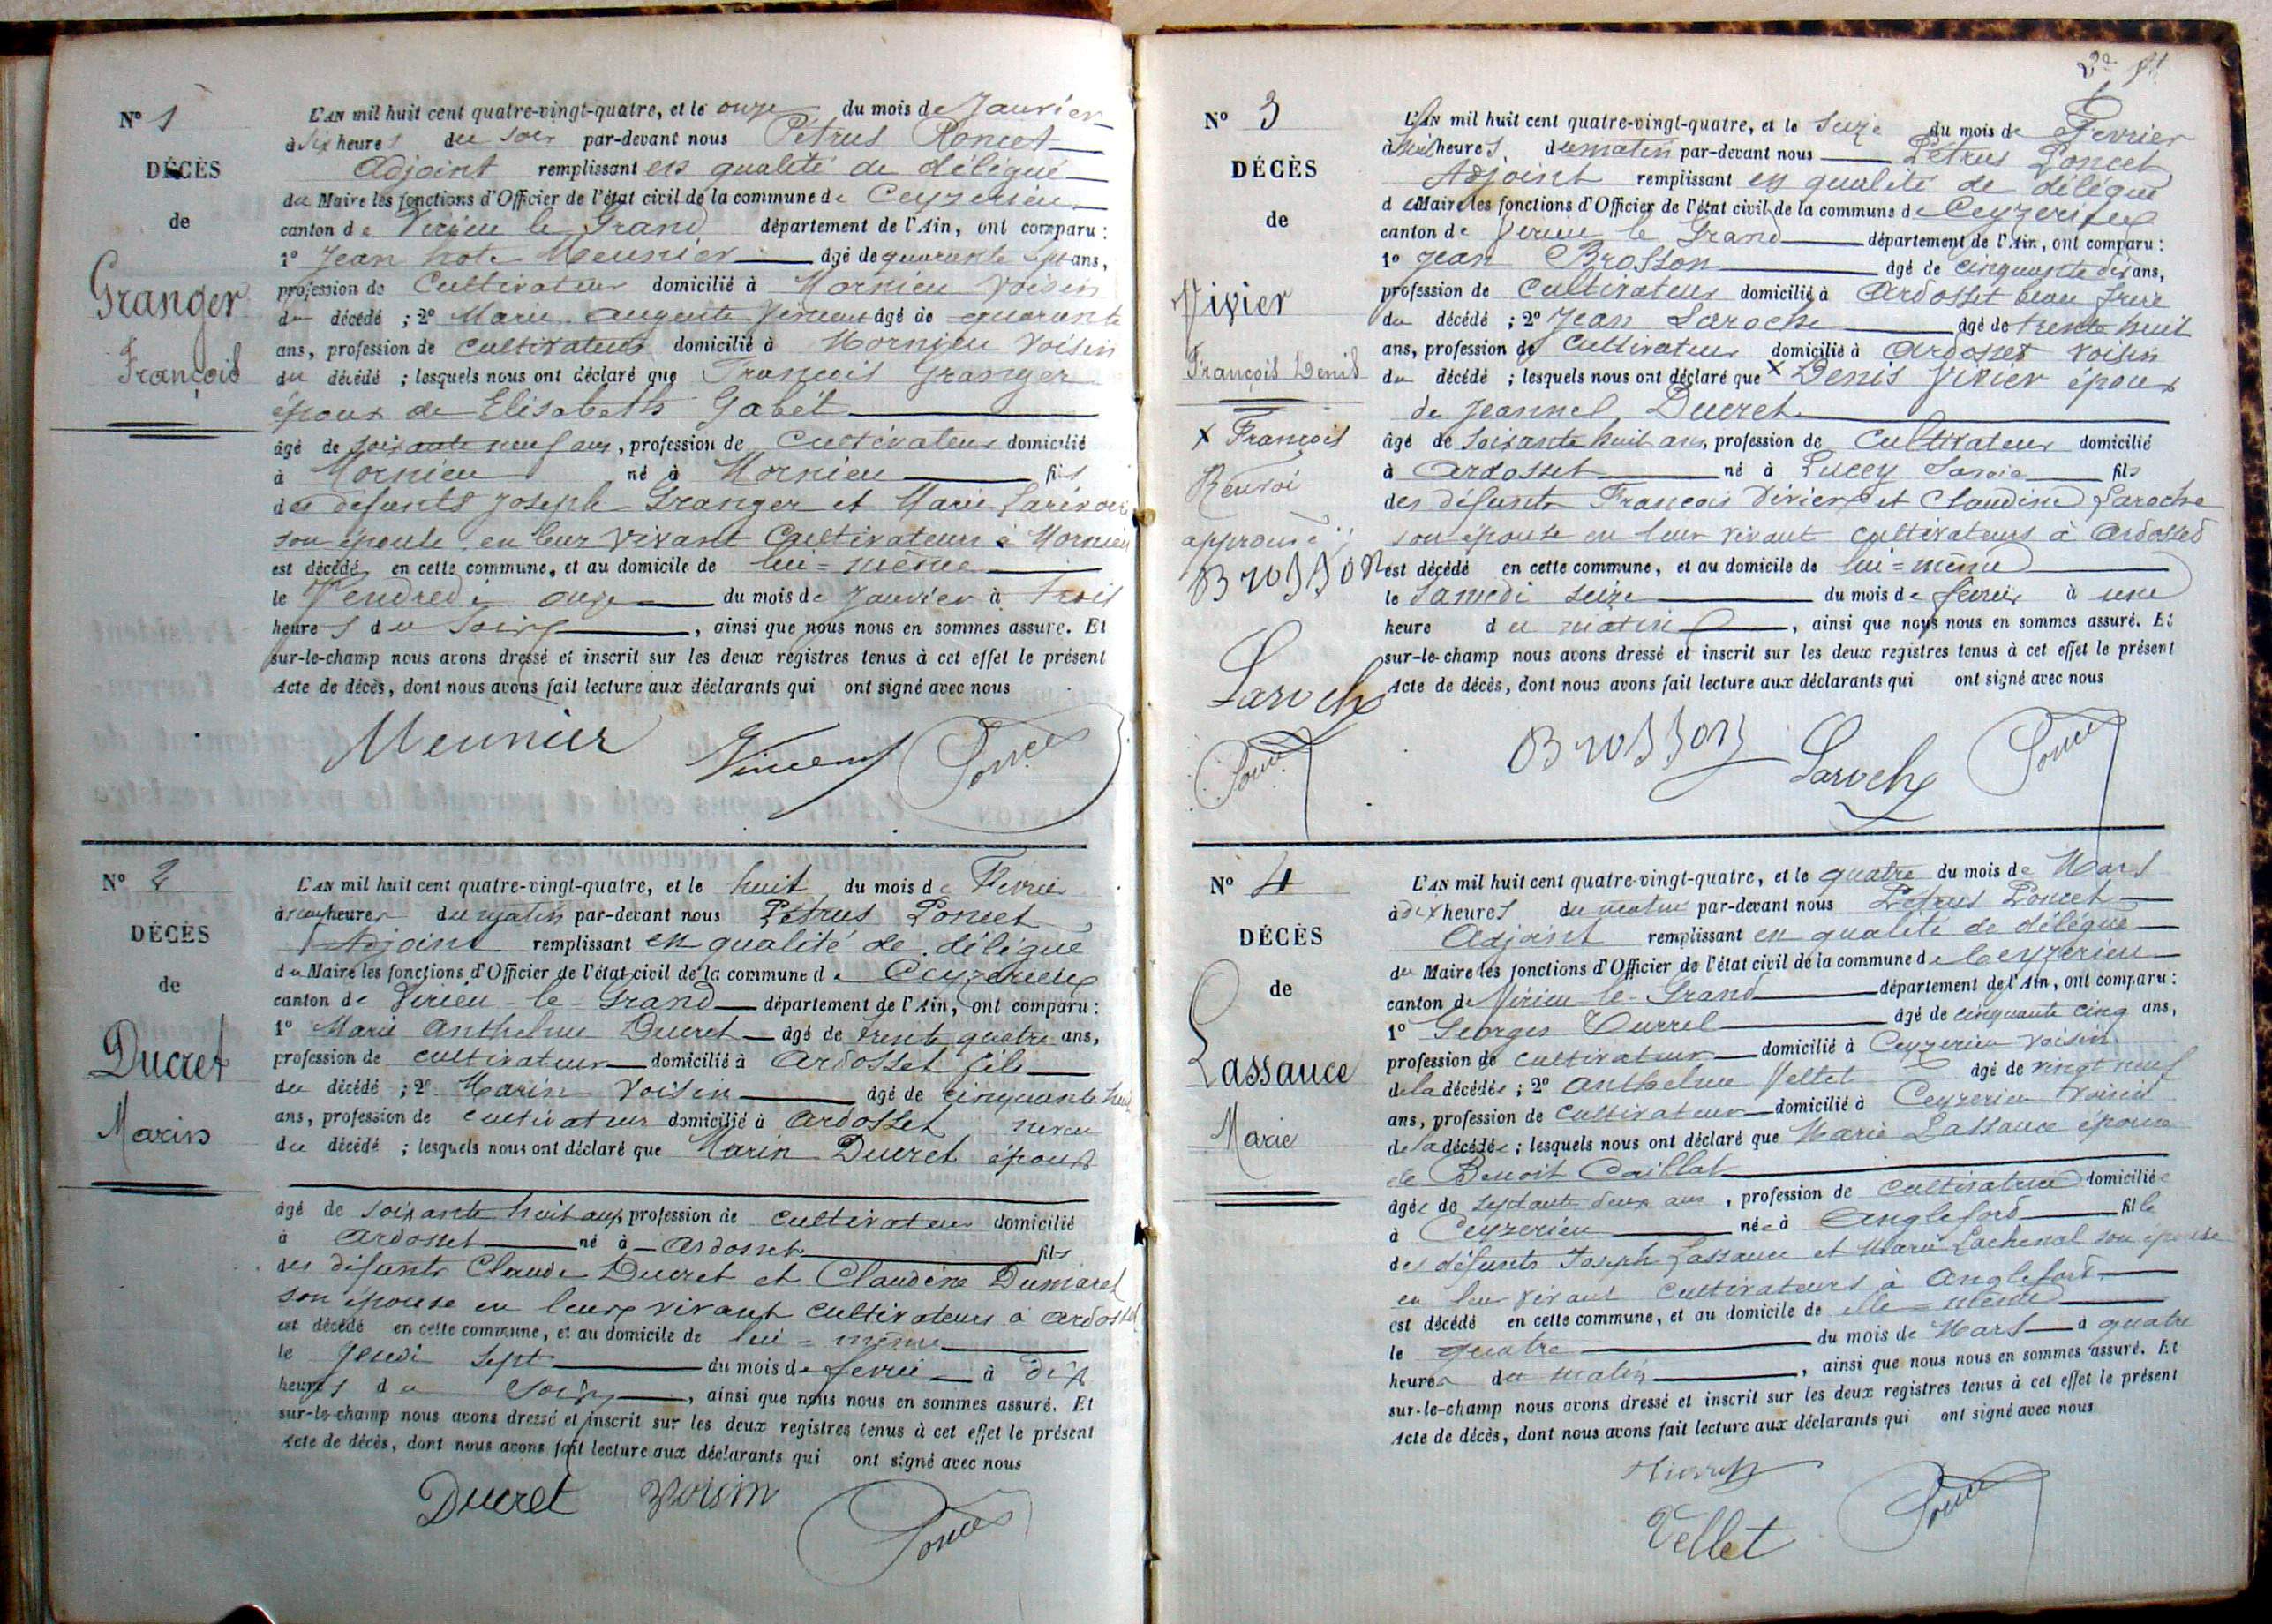 Nº 1
DÉCÈS
de
Granger
François
L'AN mil huit cent quatre-vingt-quatre, et le onze du mois de Janvier
à six heures du soir par-devant nous Pétrus Poncet
Adjoint remplissant en qualité de délégué
du Maire les fonctions d'Officier de l'état civil de la commune de Ceyzerieu
canton de Virieu le Grand département de l'Ain, ont comparu :
1º Jean Meunier âgé de quarante sept ans,
profession de Cultivateur domicilié à Mornieu voisin
du décédé ; 2º Marie auguste Vincent âgé de quarante
ans, profession de cultivateur domicilié à Mornieu voisin
du décédé ; lesquels nous ont déclaré que François Granger
époux de Elisabeth Gabet
âgé de soixante neuf ans, profession de Cultivateur domicilié
à Mornieu né à Mornieu fils
des défunts Joseph Granger et Marie
son épouse en leur vivant Cultivateurs à Mornieu
est décédé en cette commune, et au domicile de lui=même
le Vendredi onze du mois de Janvier à trois
heures du soir, ainsi que nous nous en sommes assuré. Et
sur-le-champ nous avons dressé et inscrit sur les deux registres tenus à cet effet le présent
Acte de décès, dont nous avons fait lecture aux déclarants qui ont signé avec nous
Meunier Vincent Poncet
Nº 2
DÉCÈS
de
Ducret
Marin
L'AN mil huit cent quatre-vingt-quatre, et le huit du mois de Fevrier
à heures du matin par-devant nous Pétrus Poncet
Adjoint remplissant en qualité de délégué
du Maire les fonctions d'Officier de l'état civil de la commune de Ceyzerieu
canton de Virieu-le-Grand département de l'Ain, ont comparu :
1º Marie Anthelme Ducret âgé de trente quatre ans,
profession de cultivateur domicilié à Ardosset fils
du décédé ; 2º Marin Voisin âgé de cinquante huit
ans, profession de cultivateur domicilié à Ardosset neveu
du décédé ; lesquels nous ont déclaré que Marin Ducret époux
âgé de soixante huit ans, profession de cultivateur domicilié
à Ardosset né à Ardosset fils
des défunts Claude Ducret et Claudine Dumarest
son épouse en leurs vivant cultivateurs à Ardosset
est décédé en cette commune, et au domicile de lui=même
le Jeudi sept du mois de fevrier à dix
heures du Soir, ainsi que nous nous en sommes assuré. Et
sur-le-champ nous avons dressé et inscrit sur les deux registres tenus à cet effet le présent
Acte de décès, dont nous avons fait lecture aux déclarants qui ont signé avec nous
Ducret Voisin Poncet
Nº 3
DÉCÈS
de
Vivier
François Denis
X François
Renvoi
approuvé
Brosson
Laroche
Poncet
L'AN mil huit cent quatre-vingt-quatre, et le seize du mois de Fevrier
à heures du matin par-devant nous Pétrus Poncet
Adjoint remplissant en qualité de délégué
du Maire les fonctions d'Officier de l'état civil de la commune de Ceyzerieu
canton de Virieu le Grand département de l'Ain, ont comparu :
1º Jean Brosson âgé de cinquante dix ans,
profession de Cultivateur domicilié à Ardosset beau frere
du décédé ; 2º Jean Laroche âgé de trente huit
ans, profession de Cultivateur domicilié à Ardosset voisin
du décédé ; lesquels nous ont déclaré que X Denis Vivier époux
de Jeannel Ducret
âgé de soixante huit ans, profession de Cultivateur domicilié
à Ardosset né à Lucey Savoie fils
des défunts François Vivier et Claudine Laroche
son épouse en leur vivant cultivateurs à Ardosset
est décédé en cette commune, et au domicile de lui=même
le Samedi seize du mois de fevrier à une
heure du matin, ainsi que nous nous en sommes assuré. Et
sur-le-champ nous avons dressé et inscrit sur les deux registres tenus à cet effet le présent
Acte de décès, dont nous avons fait lecture aux déclarants qui ont signé avec nous
Brosson Laroche Poncet
Nº 4
DÉCÈS
de
Lassauce
Marie
L'AN mil huit cent quatre-vingt-quatre, et le quatre du mois de Mars
à dix heures du matin par-devant nous Pétrus Poncet
Adjoint remplissant en qualité de délégué
du Maire les fonctions d'Officier de l'état civil de la commune de Ceyzerieu
canton de Virieu-le-Grand département de l'Ain, ont comparu :
1º Georges âgé de cinquante cinq ans,
profession de cultivateur domicilié à Ceyzerieu voisin
de la décédée ; 2º Anthelme Vellet âgé de vingt neuf
ans, profession de cultivateur domicilié à Ceyzerieu voisin
de la décédée ; lesquels nous ont déclaré que Marie Lassauce épouse
de Benoit Caillat
âgée de septante deux ans, profession de cultivatrice domiciliée
à Ceyzerieu née à Anglefort fille
des défunts Joseph Lassauce et Marie Lachenal son épouse
en leur vivant cultivateurs à Anglefort
est décédé en cette commune, et au domicile de elle=même
le quatre du mois de Mars à quatre
heures du matin, ainsi que nous nous en sommes assuré. Et
sur-le-champ nous avons dressé et inscrit sur les deux registres tenus à cet effet le présent
Acte de décès, dont nous avons fait lecture aux déclarants qui ont signé avec nous
Vellet Poncet